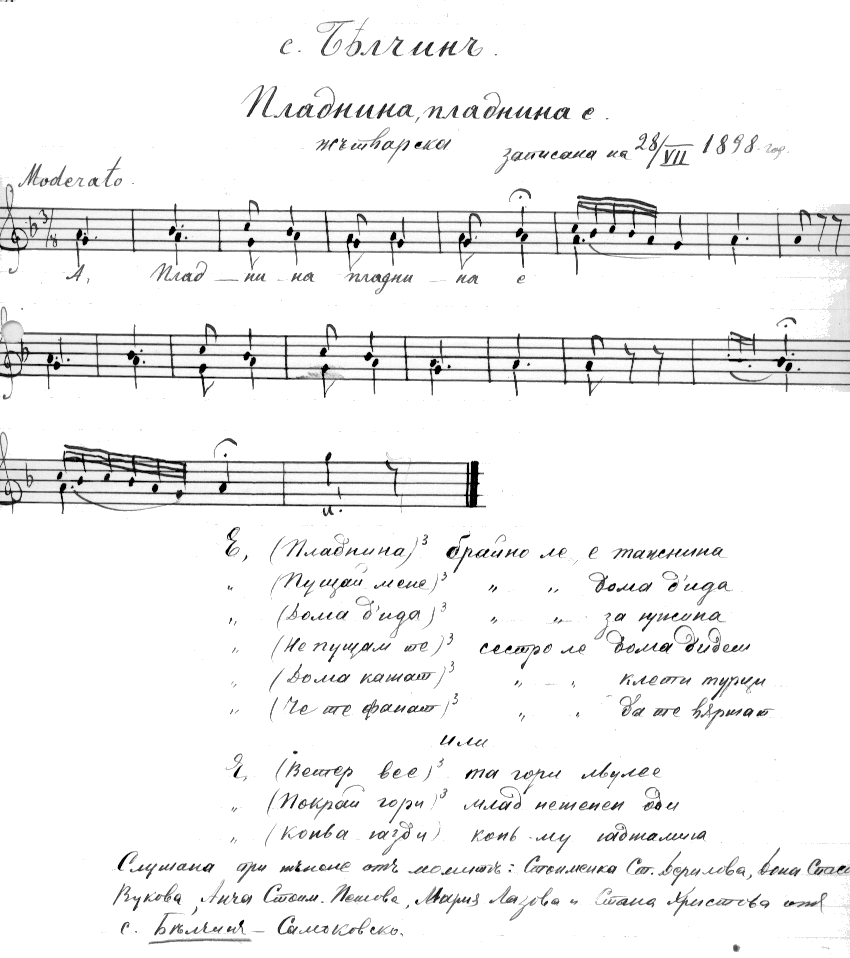 с. Бѣлчинъ.
Пладнина, пладнина е.
жътварска записана на 28/VII 1898 год.
Moderato.
3/8
А, Плад — ни — на пладни — на е
или
Е, (Пладнина)³ брайно ле, е ташнина
„ (Пущай мене)³ „ „ дома д'ида
„ (Дома д'ида)³ „ „ за ужина
„ (Не пущам те)³ сестро ле дома д'идеш
„ (Дома кашат)³ „ „ клети турци
„ (Че те фанат)³ „ „ да те вържат
или
Е, (Ветер вее)³ та гори люлее
„ (Покрай гори)³ млад неженен оди
„ (Конва язди) конь му
Слушана при тъпоне отъ момитѣ: Стоименка Ст. Дерилова, Дона Спасо
Вукова, Анча Стоим. Пешова, Мария Лазова и Стана Христова отъ
с. Бѣлчинъ — Самоковско.